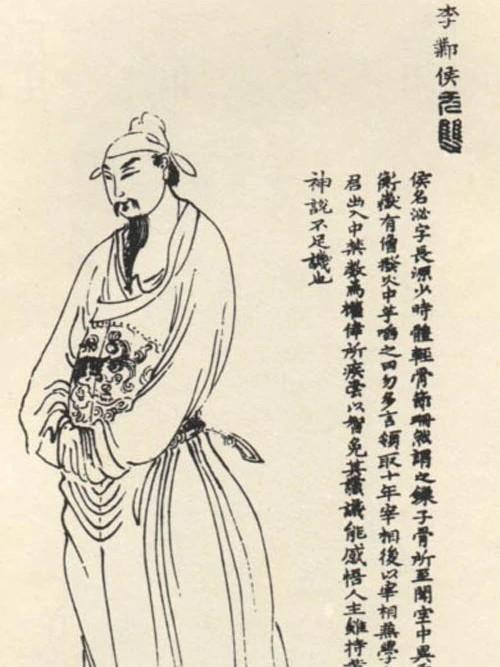 李鄴侯
侯名泌字長源少時體輕骨節珊然謂之鎖子骨所至聞空中異
衡嶽有僧撥火中芋啗之曰勿多言領取十年宰相後以宰相兼學
君出入中禁數為權倖所疾嘗以智免其讜議能感悟人主雖持
神說不足譏也